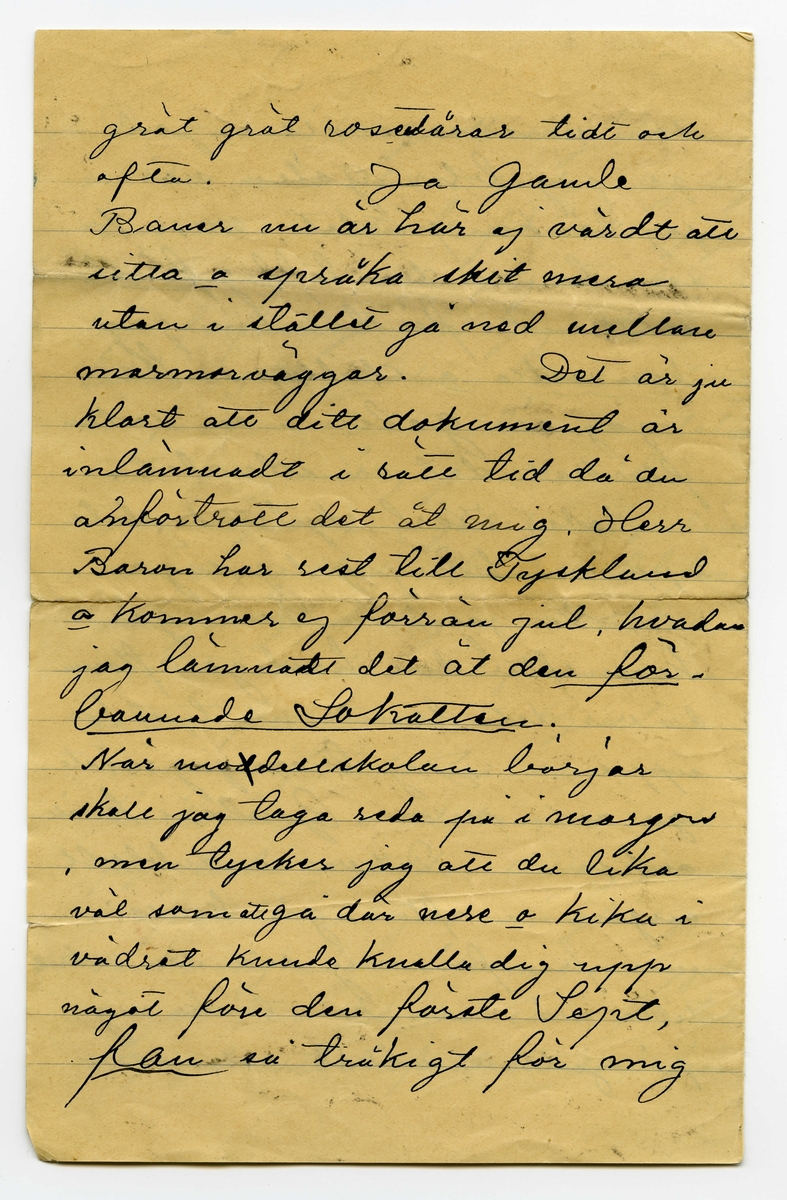 gråt gråt rosetårar tidt och
ofta. Ja Gamle
Bauer nu är här ej värdt att
sitta o språka skit mera
utan i stället gå ned mellan
marmorväggar. Det är ju
klart att ditt dokument är
inlämnadt i rätt tid då du
anförtrott det åt mig. Herr
Baron har rest till Tyskland
o kommer ej förrän jul, hvadan
jag lämnadt det åt den för-
bannade Sokatten.
När moddellskolan börjar
skall jag taga reda på i morgon
, men tycker jag att du lika
väl som att gå där nere o kika i
vädret kunde knalla dig upp
något före den förste Sept,
fan så tråkigt för mig